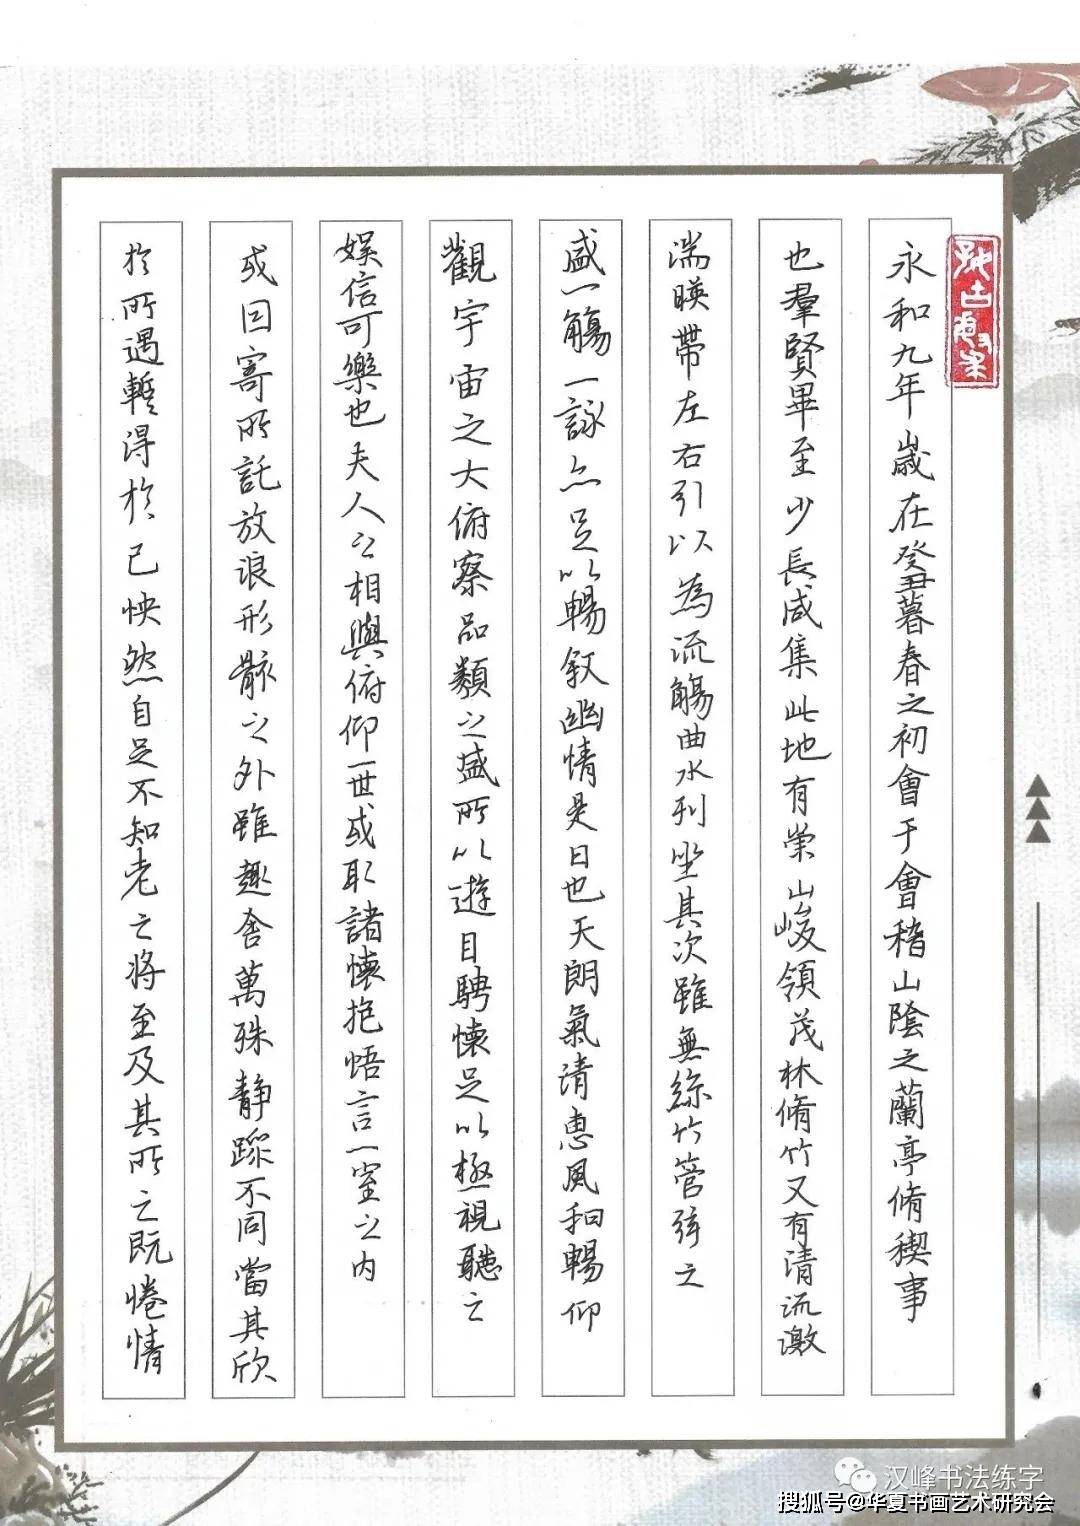 永和九年歲在癸丑暮春之初會于會稽山陰之蘭亭脩稧事
也羣賢畢至少長咸集此地有崇山峻領茂林脩竹又有清流激
湍暎帶左右引以為流觴曲水列坐其次雖無絲竹管弦之
盛一觴一詠亦足以暢叙幽情是日也天朗氣清惠風和暢仰
觀宇宙之大俯察品類之盛所以遊目騁懷足以極視聽之
娛信可樂也夫人之相與俯仰一世或取諸懷抱悟言一室之內
或因寄所託放浪形骸之外雖趣舍萬殊靜躁不同當其欣
於所遇暫得於己怏然自足不知老之將至及其所之既惓情
汉峰书法练字
搜狐号@华夏书画艺术研究会